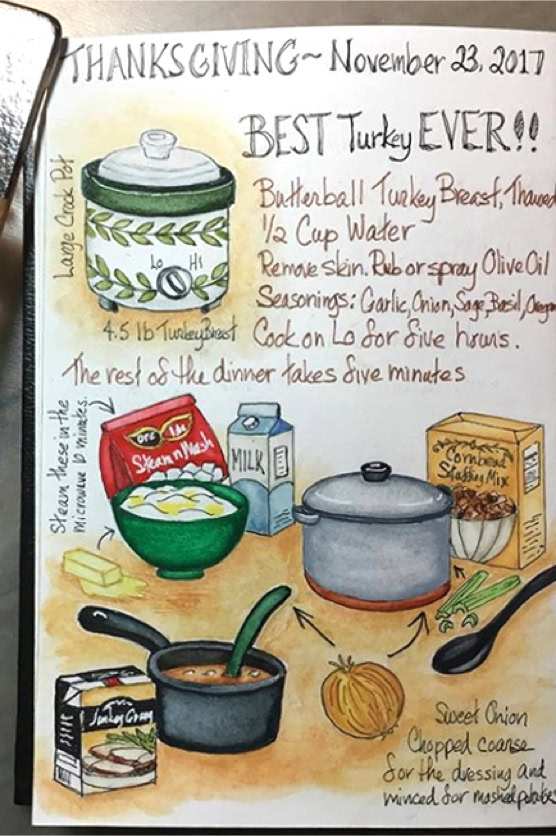 THANKSGIVING~ November 23, 2017
BEST Turkey EVER!!
Large Crock Pot
Butterball Turkey Breast, Thawed
1/2 Cup Water
Remove skin. Rub or spray Olive Oil
Seasonings: Garlic, Onion, Sage, Basil,
Lo HI
4.5 lb Turkey Breast
Cook on Lo for five hours.
The rest of the dinner takes five minutes
Steam these in the
microwave 10 minutes.
ORE IDA
Steam n Mash
MILK
Cornbread
Stuffing Mix
Turkey Gravy
Sweet Onion
Chopped coarse
for the dressing and
minced for mashed potatoes